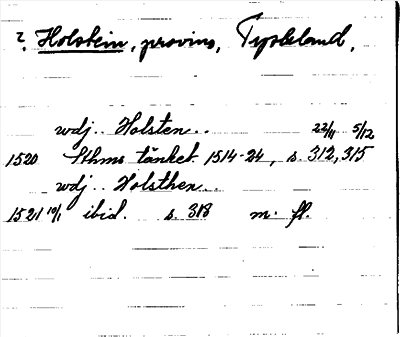 2. Holstein, provins, Tyskland.
wdj.. Holsten.. 22/11 5/12
1520 Sthms tänkeb. 1514-24, s. 312, 315
wdj.. Holsthen..
1521 10/1 ibid. s. 318 m. fl.